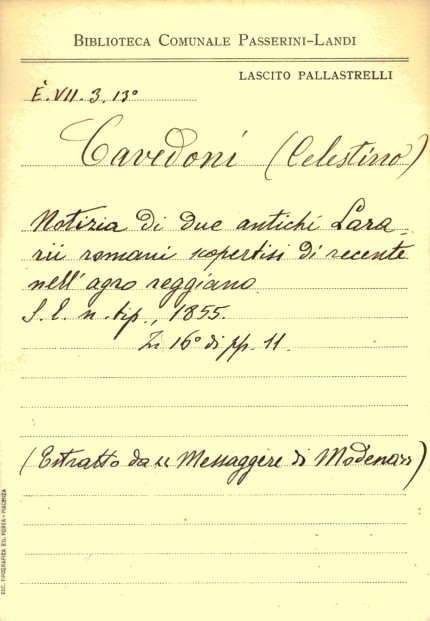 BIBLIOTECA COMUNALE PASSERINI-LANDI
LASCITO PALLASTRELLI
E. VII. 3. 13º
Cavedoni (Celestino)
Notizia di due antichi Lara-
rii romani scopertisi di recente
nell'agro reggiano
S. l. n. tip., 1855.
In 16º di pp. 11.
(Estratto da "Messaggere di Modena")
SOC. TIPOGRAFICA ED. PORTA - PIACENZA